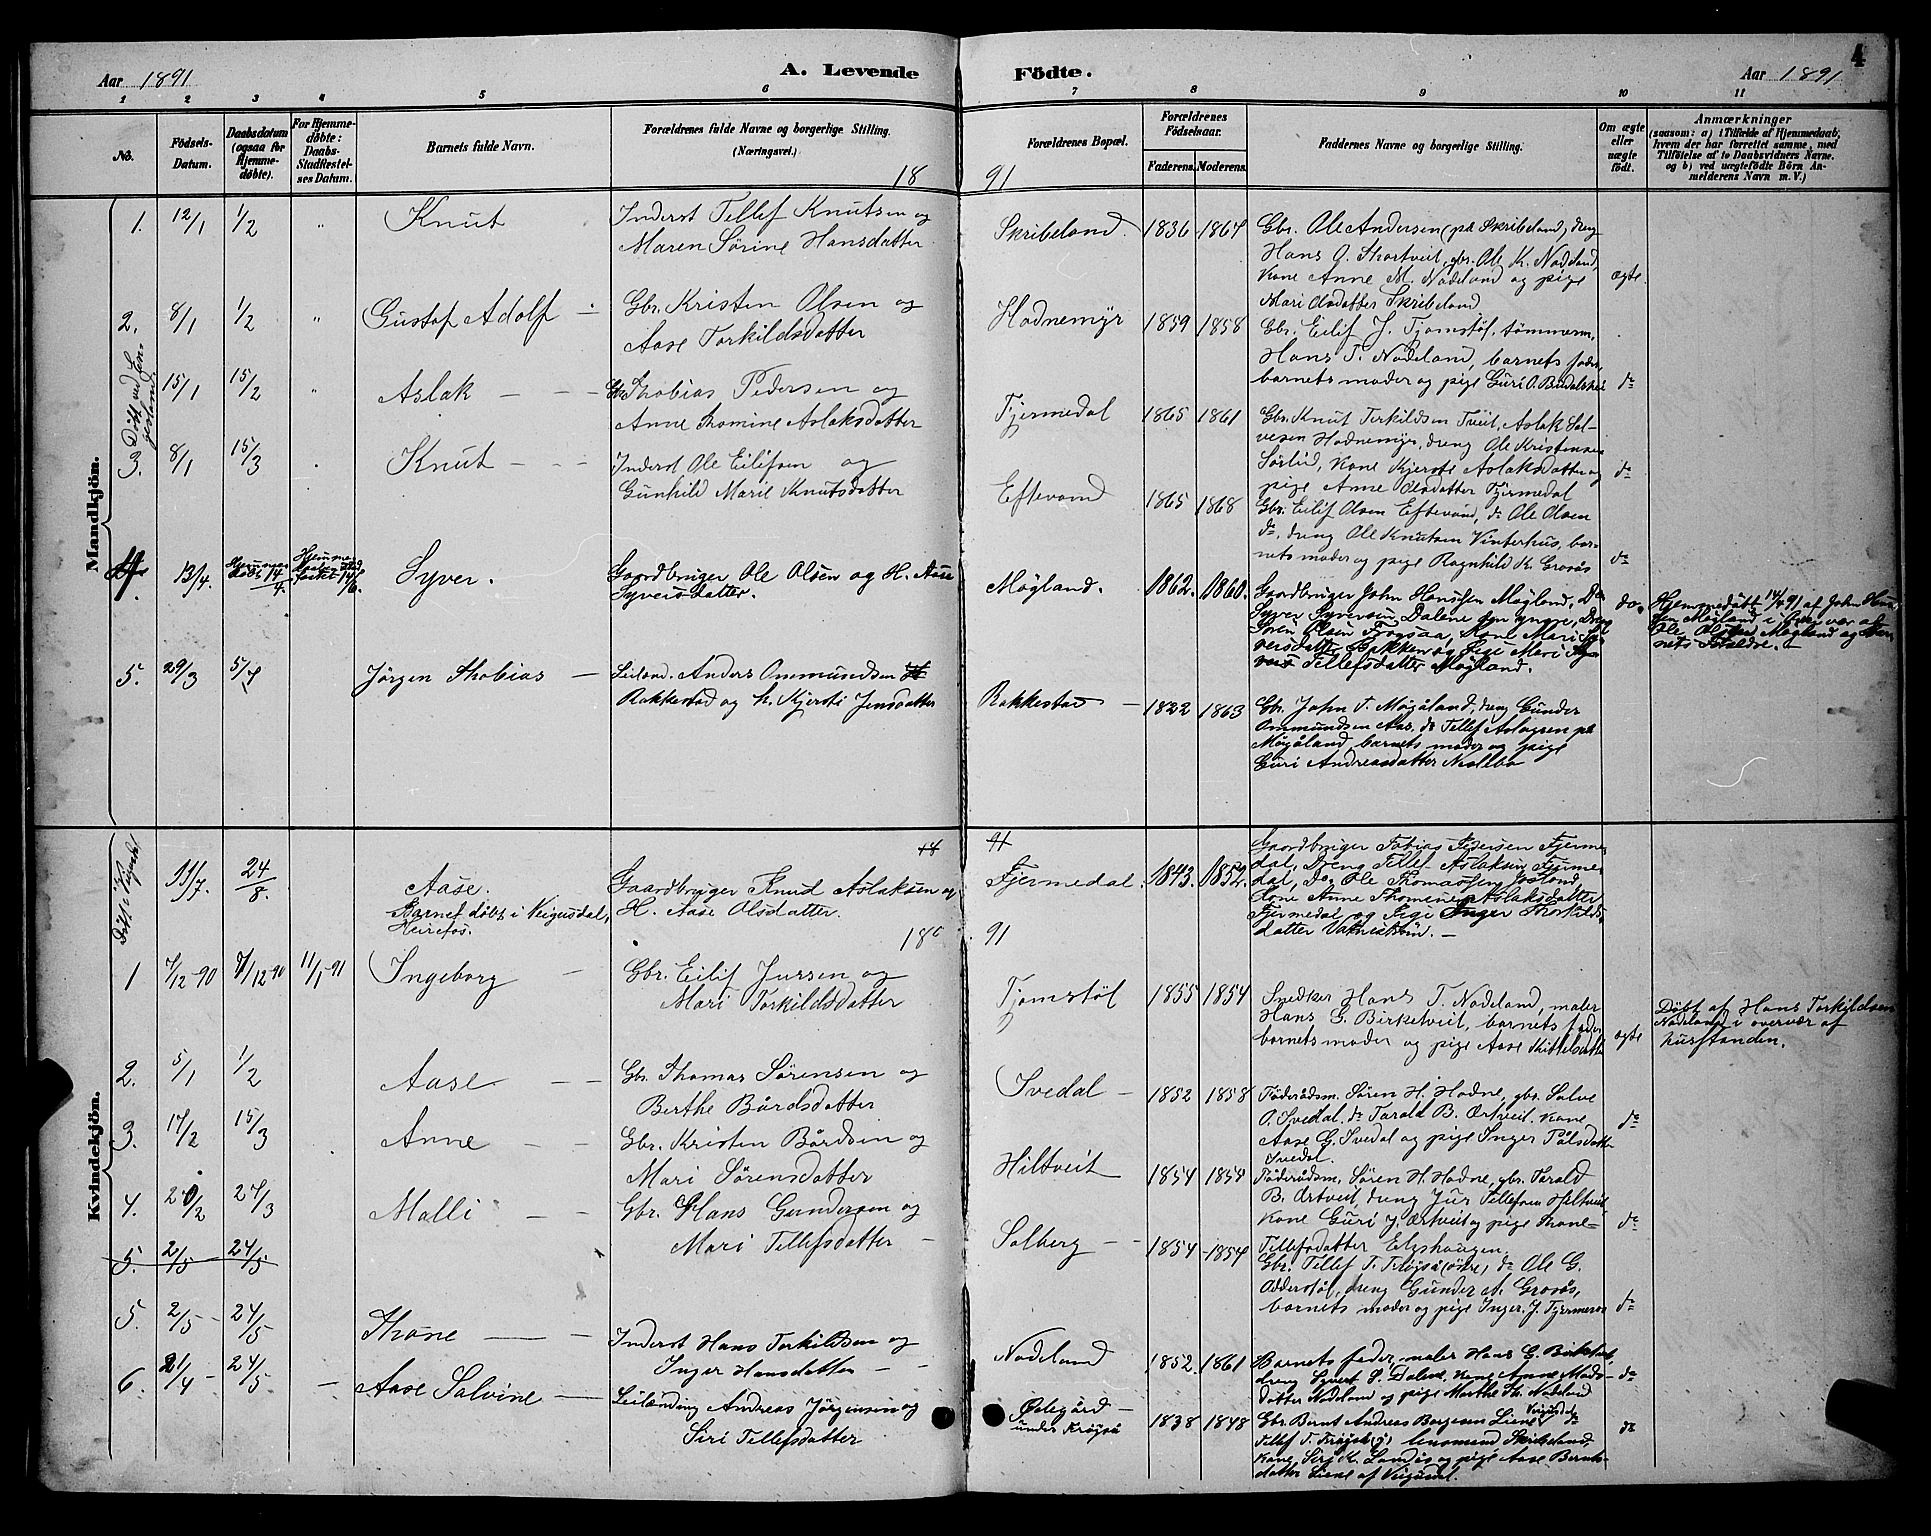 4
Aar 1891
A. Levende Födte.
Aar 1891
1 2 3 4 5 6 7 8 9 10 11
No.
Födsels-
Datum.
Daabsdatum
(ogsaa for
Hjemme-
döbte).
For Hjemme-
döbte:
Daabs-
Stadfæstel-
ses Datum.
Barnets fulde Navn.
Forældrenes fulde Navne og borgerlige Stilling.
(Næringsvei.)
Forældrenes Bopæl.
Forældrenes
Födselsaar.
Faderens. Moderens.
Faddernes Navne og borgerlige Stilling.
Om ægte
eller
uægte
født.
Anmærkninger
(saasom: a) i Tilfælde af Hjemmedaab,
hvem der har forrettet samme, med
Tilföielse af to Daabsvidners Navne.
og b) ved uægtefödte Börn An-
melderens Navn m. V.)
18 91
Mandkjön.
1. 12/1 1/2 " Knut
Inderst Tellef Knutsen og
Maren Sørine Hansdatter
Skribeland. 1836 1864
Gbr. Ole Andersen (på Skribeland), dreng
Hans O. Skortveit, gbr. Ole K. Nodeland,
Kone Anne M. Nodeland og pige
Mari Olsdatter Skribeland
ægte.
2. 8/1 1/2 " Gustaf Adolf
Gbr. Kristen Olsen og
Aase Torkildsdatter
Hodnemyr 1859 1858
Gbr. Eilif J. Tjomstøl, tømmerm.
Hans T. Nodeland, barnets fader,
barnets moder og pige Guri O.
do
15/1 15/2 " Aslak
Gbr. Thobias Pedersen og
Anne Thomine Aslaksdatter
Fjermedal 1865 1861
Gbr. Knut Terkildsen Tveit, Aslak Sal-
vesen Hodnemyr, dreng Ole Kristensen
Sørlid, Kone Kjersti Aslaksdatter og
pige Anne Olsdatter Fjermedal
do
3. Döbt ved
8/1 15/3 Knut
Inderst Ole Eilifsen og
Gunhild Marie Knutsdatter
Eftevand 1865 1868
Gbr. Eilif Olsen Eftevand, do Ole Olsen
do, dreng Ole Knutsen Vinterhus, bar-
nets moder og pige Ragnhild K. Grosås
do
4. 13/4. Hjemme-
döbt 14/4.
Syver.
Gaardbruger Ole Olsen og H. Aase
Syversdatter.
Møgland. 1862. 1860.
Gaardbruger John Hansen Møgland, Do
Syver Syversen Dalene den yngre, Dreng
Søren Olsen Frøgsaa, Kone Mari Sy-
versdatter Bakken og Pige Mari
Tellefsdatter Møgland.
do.
Hjemmedöbt 14/4 91 af John Han-
sen Møgland i Overvær af
Ole Olsen Møgland og Bar-
nets Forældre.
5. 29/3 5/7 Jørgen Thobias
Leiland. Anders Ommundsen
Rakkestad og h. Kjersti Jensdatter
Rakkestad 1822 1863
Gbr. John T. Møgåland, dreng Gunder
Ommundsen Aas, do Tellef Aslagsen på
Møgåland, barnets moder og pige
Guri Andreasdatter
18 91
Kvindekjön.
11/7. 24/8.
Aase.
Barnet döbt i Veigusdal,
Heirefos.
Gaardbruger Knud Aslaksen og
H. Aase Olsdatter.
Fjermedal. 1843. 1852.
Gaardbruger Tobias Pedersen Fjerme-
dal, Dreng Tellef Aslaksen Fjerme-
dal, Do Ole Thomassen
Kone Anne Thomine Aslaksdatter
Fjermedal og Pige Inger Thorkilds-
datter
18 91
1 7/12-90 8/12 90 11/1 91 Ingeborg
Gbr. Eilif Jursen og
Mari Torkildsdatter
Tjomstøl 1855 1854
Snedker Hans T. Nodeland, maler
Hans G. Birketveit, barnets fader,
barnets moder og pige Aase Kittelsdatter
ægte
Döbt af Hans Torkildsen
Nodeland i overvær af
husstanden.
2. 5/1 1/2 Aase
Gbr. Thomas Sørensen og
Berthe Bårdsdatter
Ivedal 1852 1858
Föderådsm. Søren H. Hodne, gbr. Salve
O. Ivedal, do Tarald B. Ertveit, Kone
Aase G. Ivedal og pige Inger Pålsdatt.
Ivedal.
do
3. 17/2 15/3 Anne
Gbr. Kristen Bårdsen og
Mari Sørensdatter
Hiltveit 1854 1854
Föderådsm. Søren H. Hodne, gbr. Tarald
B. Ertveit, dreng Jur Tellefsen Hiltveit,
Kone Guri J. Ertveit og pige Thone
Tellefsdatter Elgshaugen
do
4. 20/2 27/3 Malli
Gbr. Hans Gundersen og
Mari Tellefsdatter
Solberg 1854 1854
Gbr. Tellef T. Frøgså (østre), do Ole G.
Odderstøl, dreng Gunder A. Grosås,
barnets moder og pige Inger J.
do
5. 2/5 24/5
5. 2/5 24/5 Thone
Inderst Hans Torkildsen og
Inger Hansdatter
Nodeland 1852. 1861
Barnets fader, maler Hans G.
dreng Syvert S. Dalene, Kone Anne Mads-
datter Nodeland og pige Marthe Th. Nodeland
do
6. 21/4 24/5 Aase Salvine
Leilænding Andreas Jørgensen og
Siri Tellefsdatter
Ødegård
under Frøgså
1838 1848
Gbr. Bernt Andreas Børgesen Liene Veigusdal do
Tellef T. Frøgså lensmand Skribeland,
Kone Siri K. Landås og pige Aase Bernts-
datter Liene af Veigusdal.
do